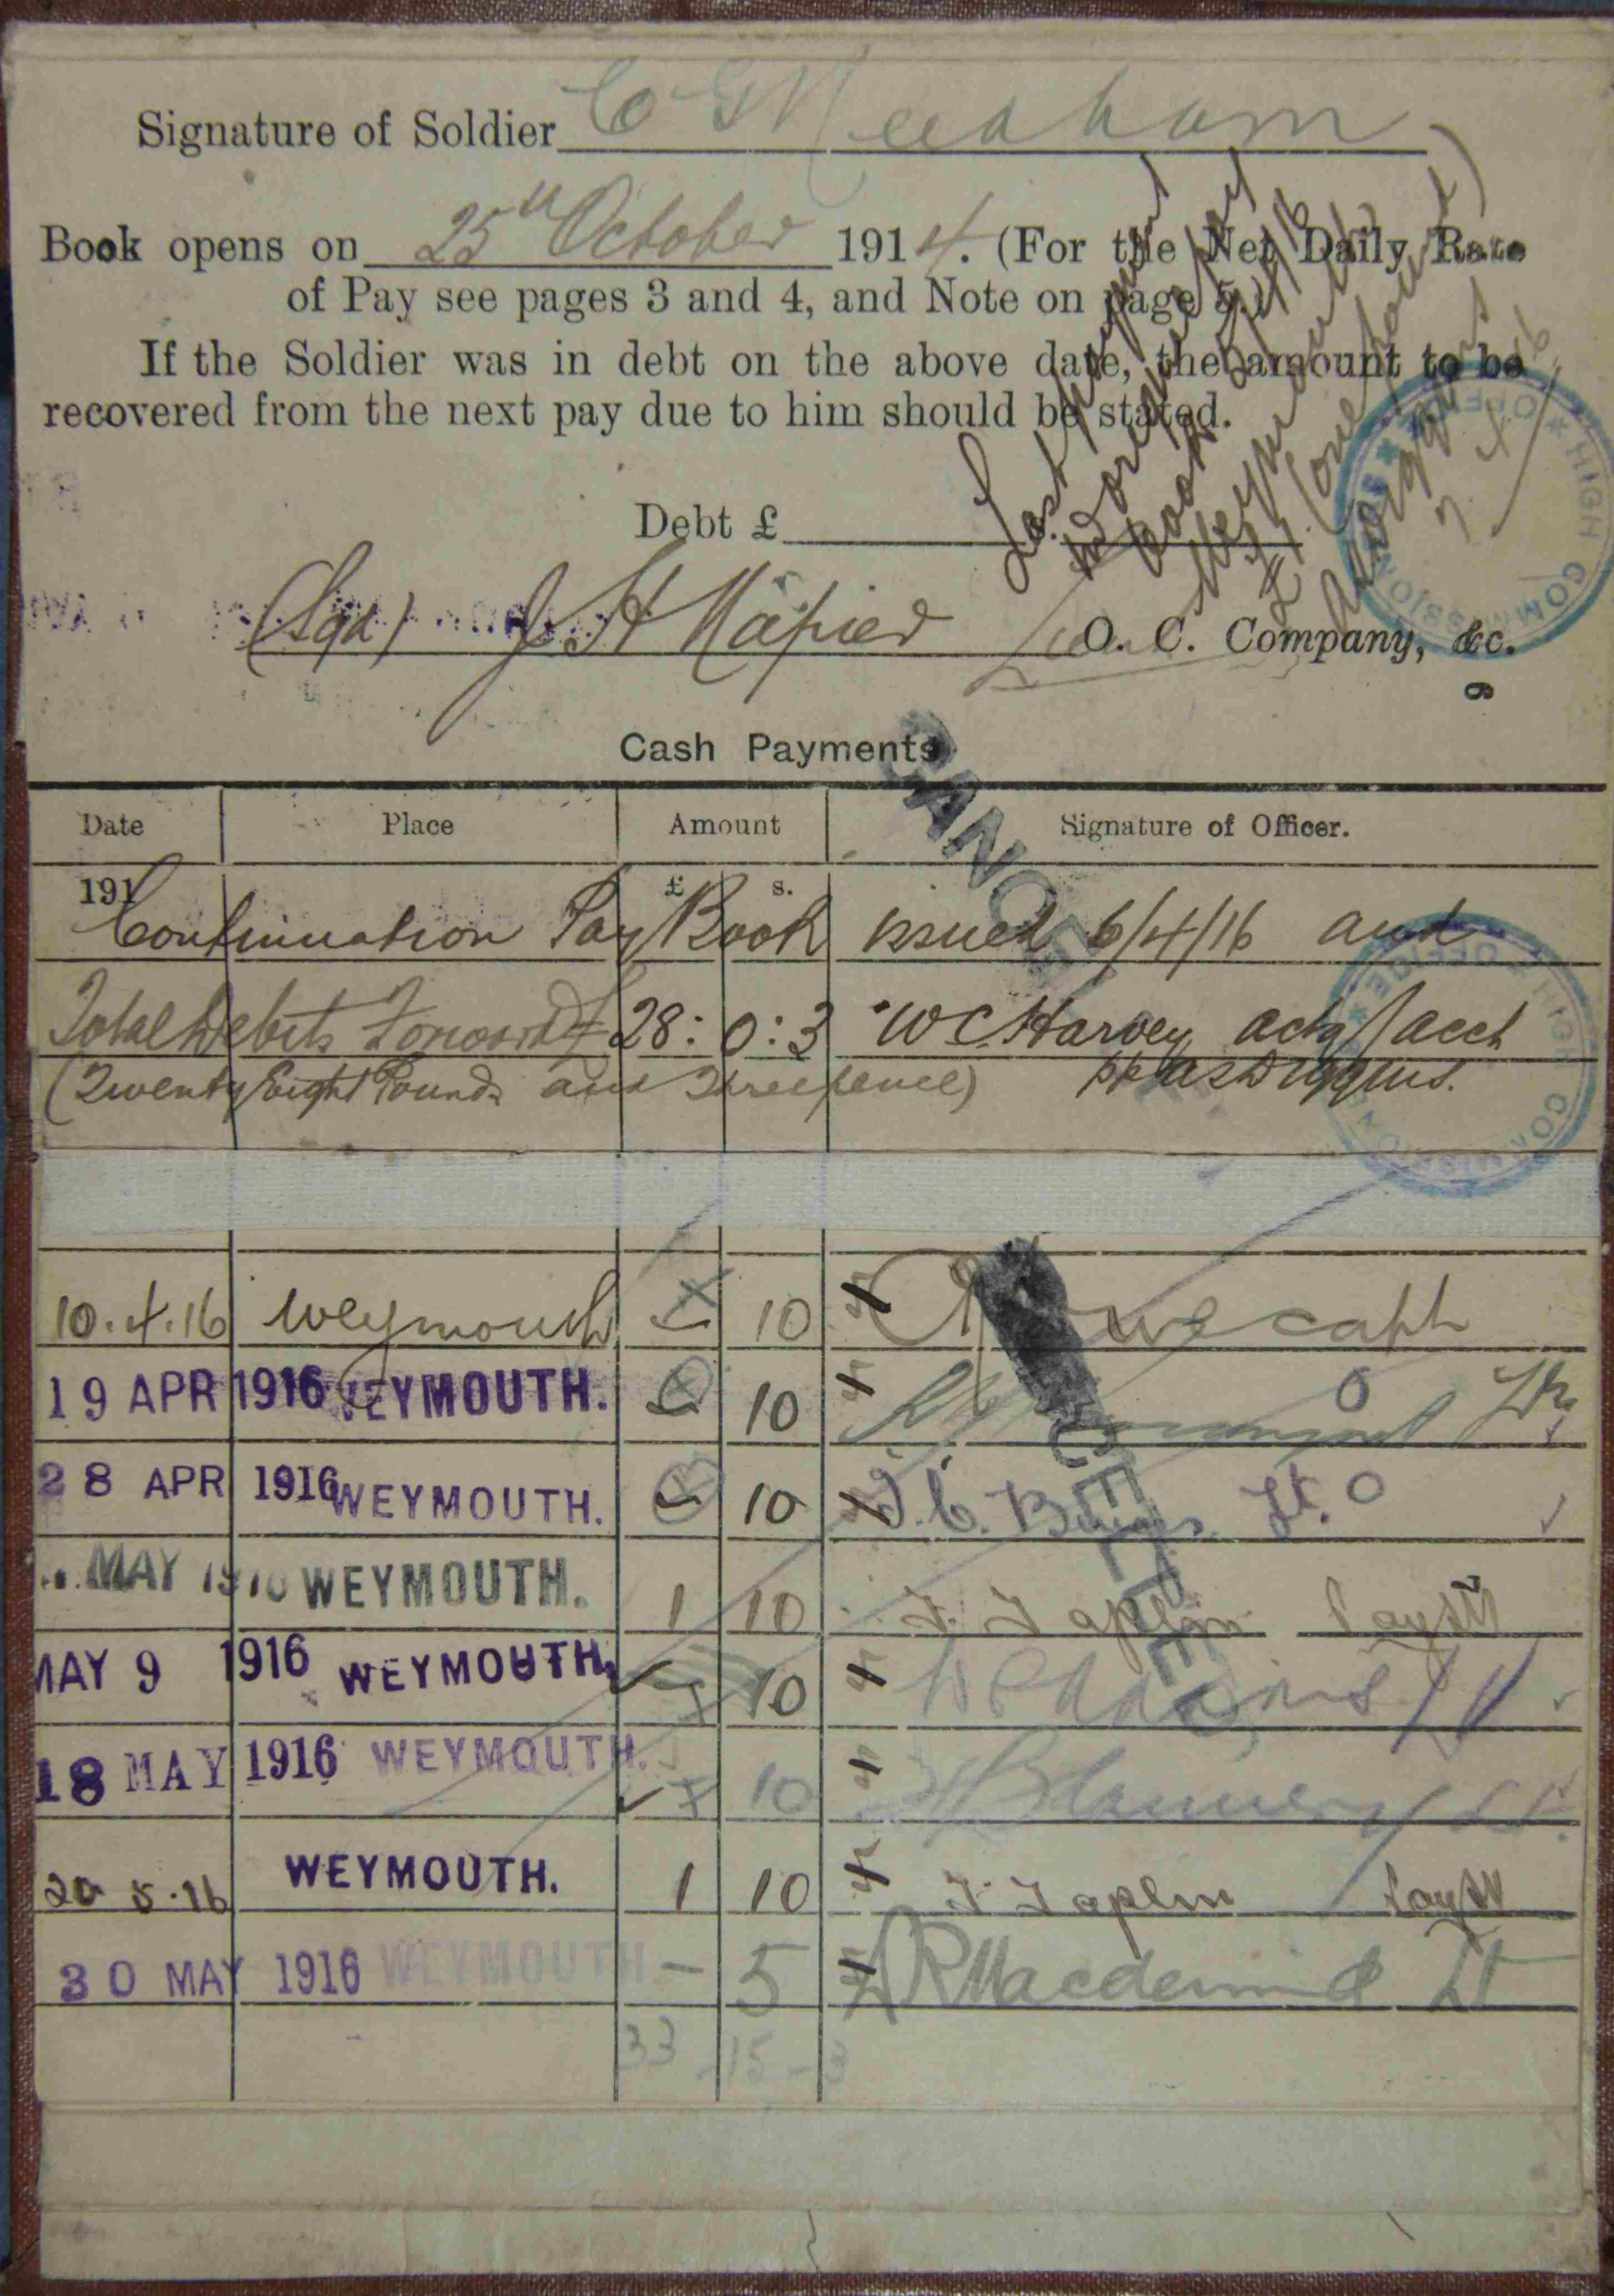 Signature of Soldier C G Meatham
Book opens on 25th October 1914. (For the Net Daily Rate
of Pay see pages 3 and 4, and Note on page 5.)
If the Soldier was in debt on the above date, the amount to be
recovered from the next pay due to him should be stated.
Last payment
in original pay
Book
Weymouth
£1 (one pound)
Debt £
(Sgd) J H Napier O. C. Company, &c.
HIGH COMMISSION
OFFICE
6
Cash Payments
CANCELLED
Date Place Amount Signature of Officer.
191 £ s.
Continuation Pay Book issued 6/4/16 and
Total Debits Forward £ 28 : 0 : 3 W C Harvey actg / acct
(Twenty Eight Pounds and Threepence) pp
HIGH COMMISSION
OFFICE
10.4.16 Weymouth 10 Capt
19 APR 1916 WEYMOUTH. 10
28 APR 1916 WEYMOUTH. 10 Lt.
CANCELLED
MAY 1916 WEYMOUTH. 1 10 T. Taplin
MAY 9 1916 WEYMOUTH. 10
18 MAY 1916 WEYMOUTH. 10 Lt.
20 5.16 WEYMOUTH. 1 10 T. Taplin
30 MAY 1916 WEYMOUTH - 5 R Macdermid Lt
33 - 15 - 3